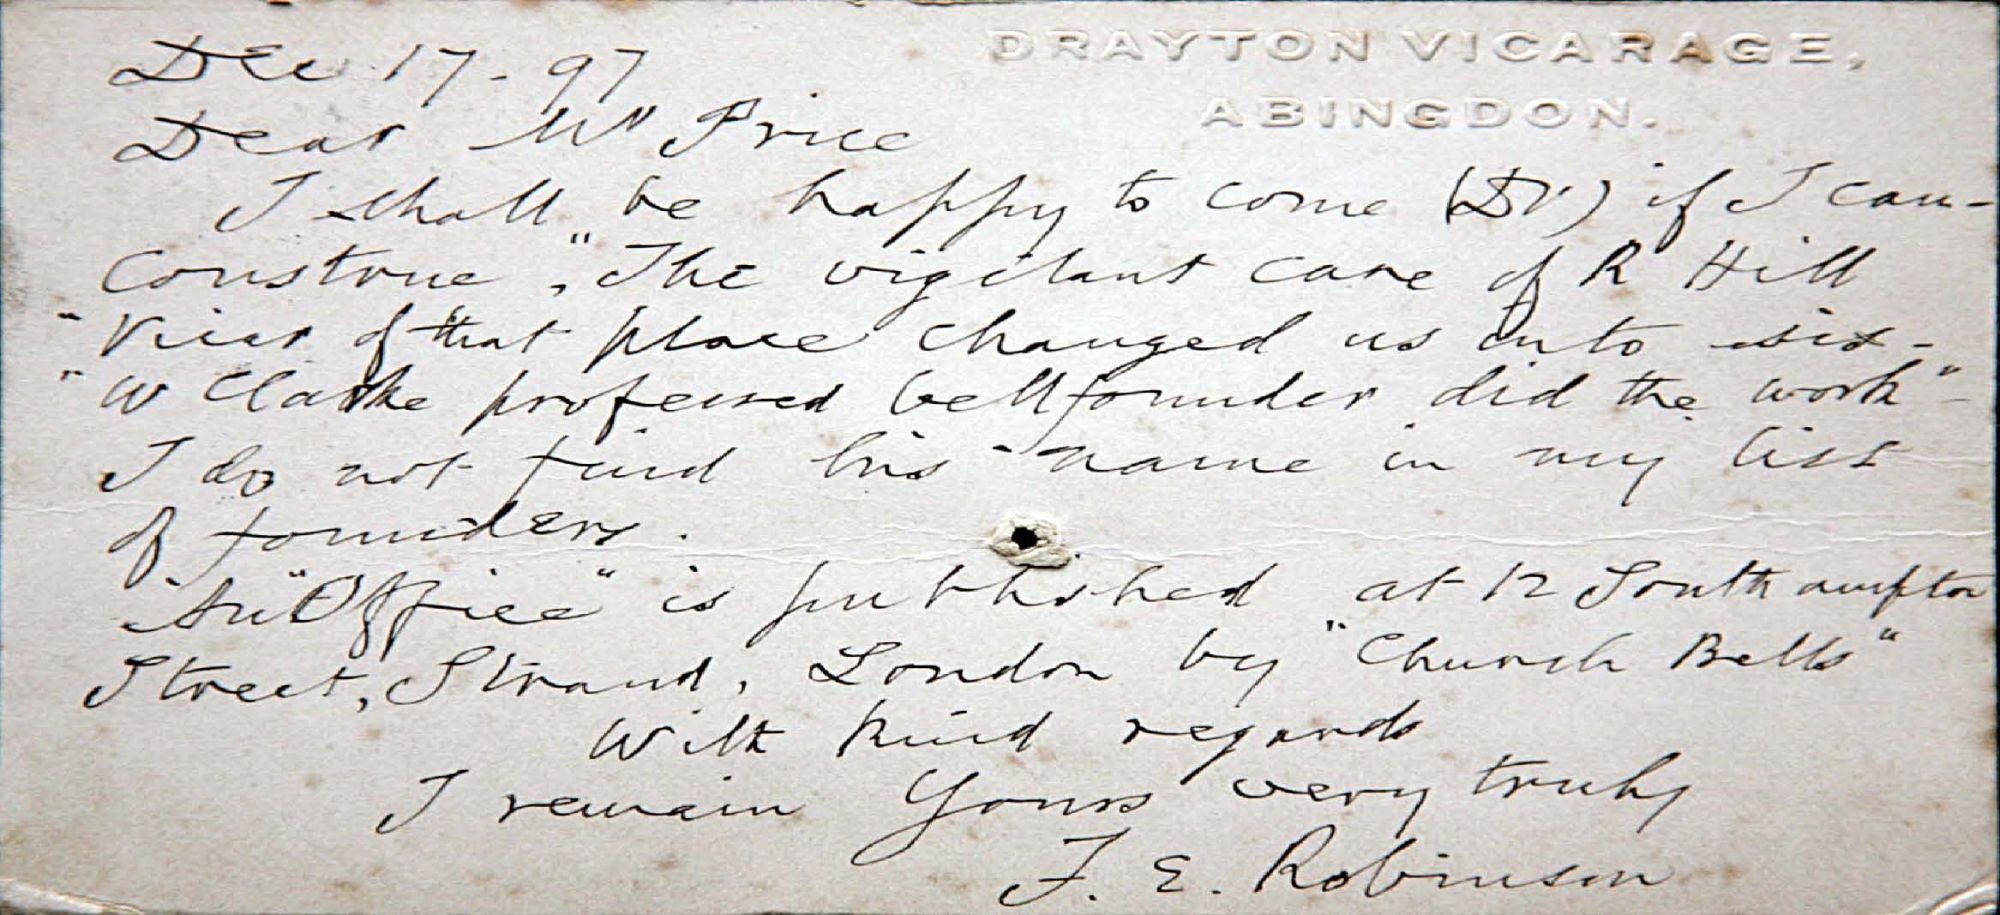 DRAYTON VICARAGE,
ABINGDON.
Dec 17-97
Dear Mr Price
I shall be happy to come (DV) if I can-
Construe, "The vigilant care of R Hill
"Vicar of that place changed us into six-
"W Clarke professed bellfounder did the work"-
I do not find his name in my list
of founders.
An "Office" is published at 12 Southampton
Street, Strand, London by "Church Bells"
With kind regards
I remain Yours very truly
F. E. Robinson